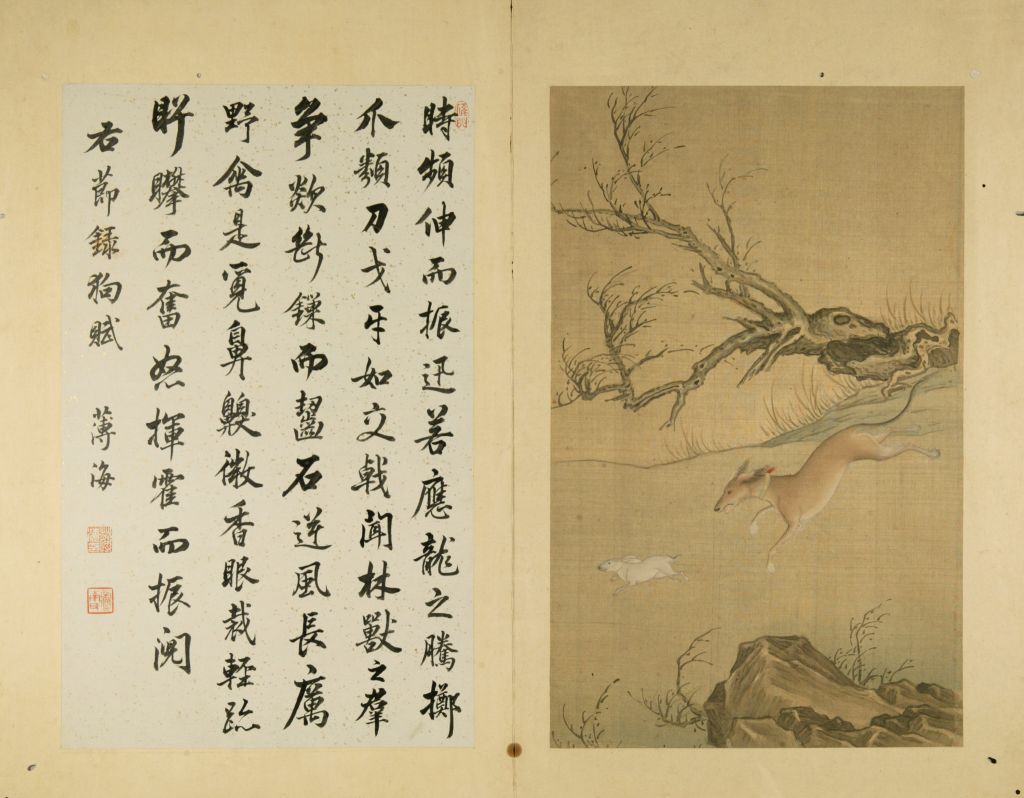 時頻伸而振迅若應龍之騰擲
爪類刀戈牙如交戟聞林獸之羣
争欻斷鏁而齧石逆風長厲
野禽是覓鼻齅微香眼裁輕跡
而奮怒揮霍而振
右莭録狗賦 薄海